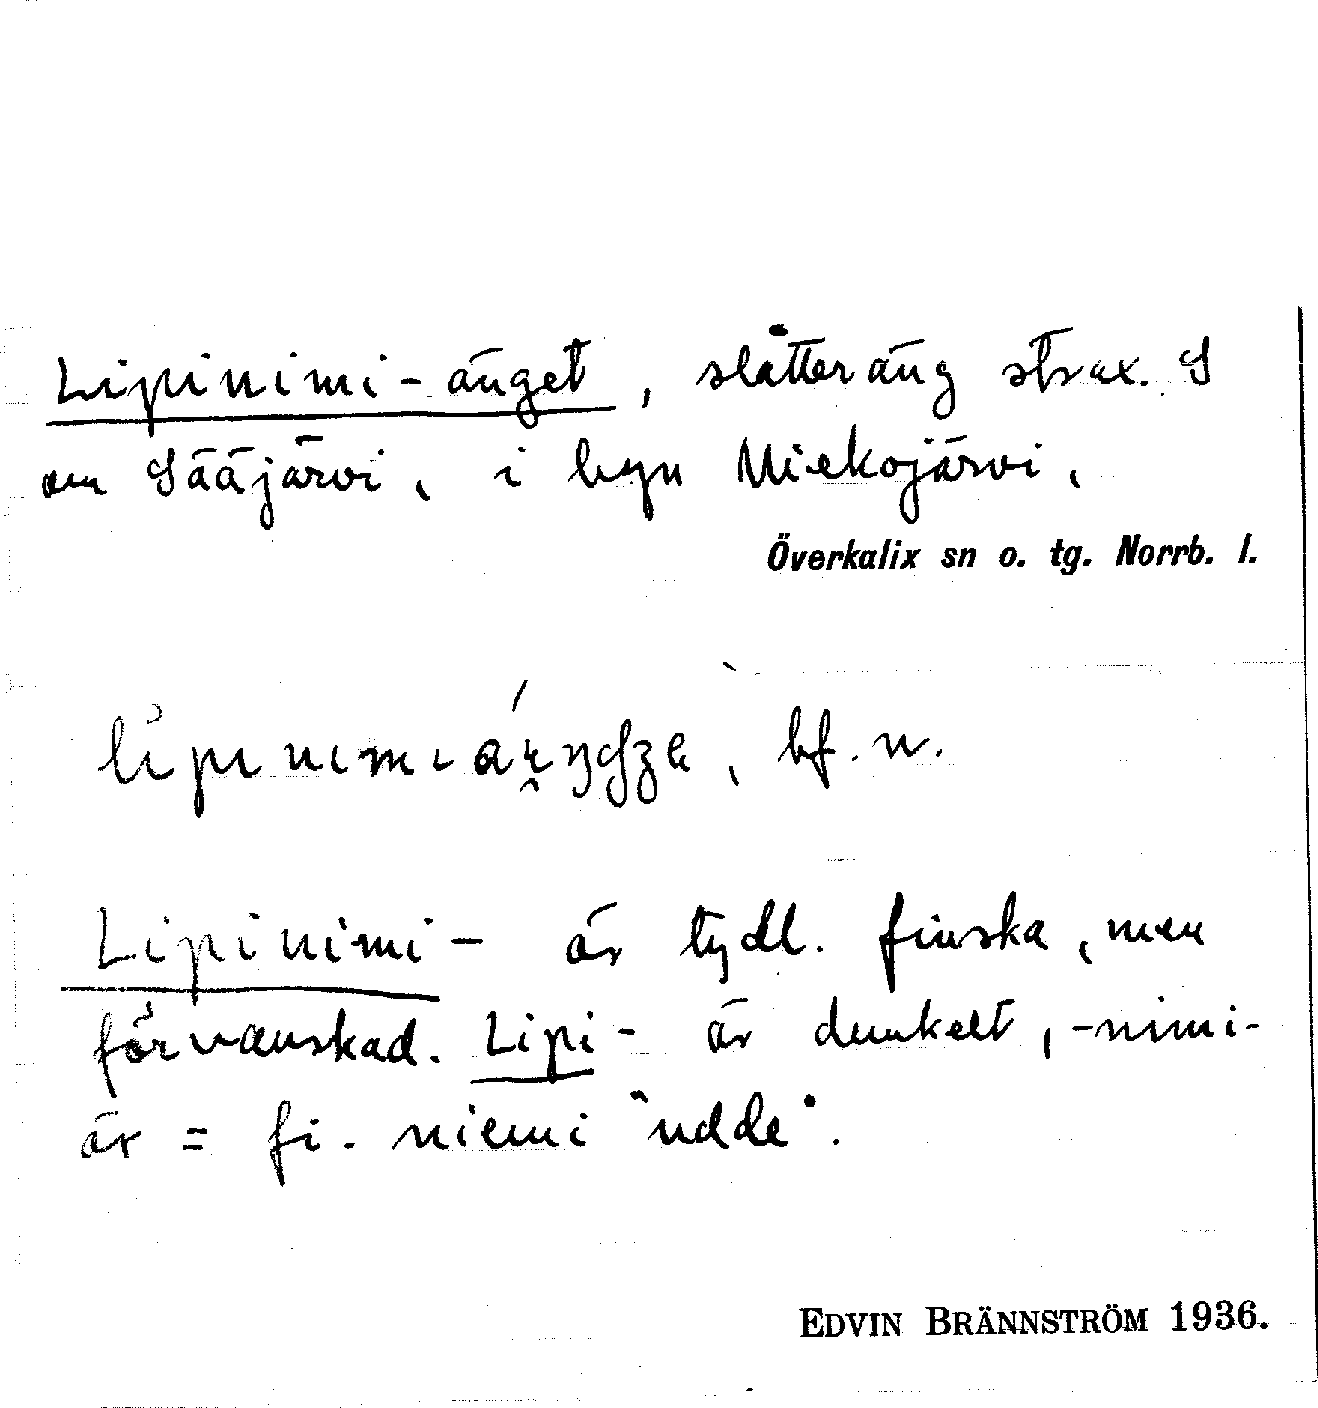 Lipinimi-änget, slåtteräng strax. S
om Sääjärvi, i byn Miekojärvi,
Överkalix sn o. tg. Norrb. l.
bf. n.
Lipinimi- är tydl. finska, men
förvanskad. Lipi- är dunkelt, -nimi-
är = fi. niemi "udde".
EDVIN BRÄNNSTRÖM 1936.